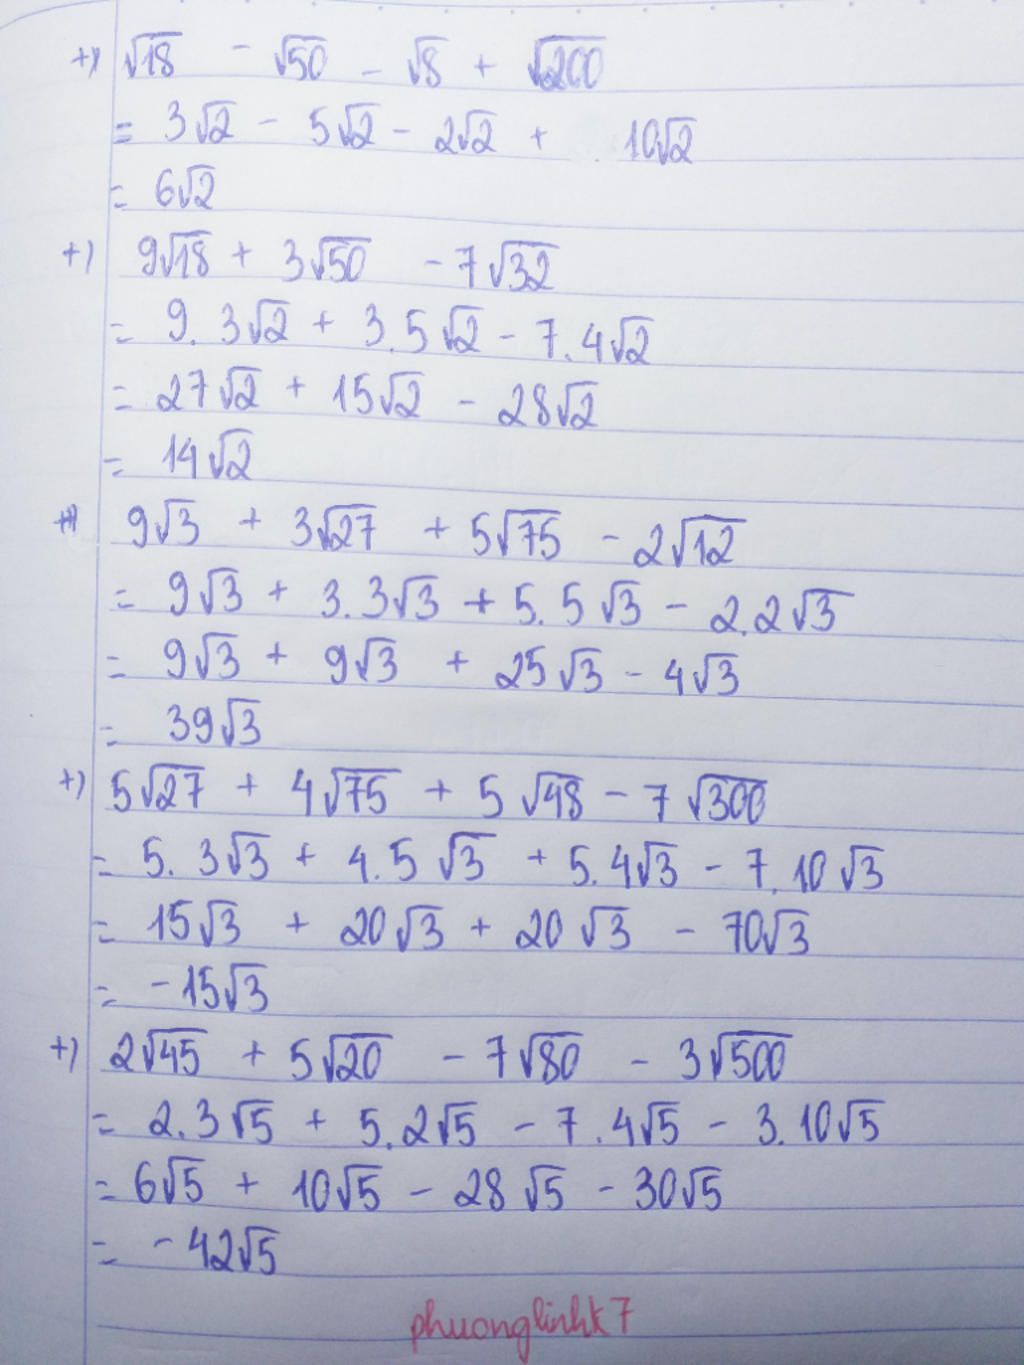 +) √18 - √50 - √8 + √200
= 3√2 - 5√2 - 2√2 + 10√2
= 6√2
+) 9√18 + 3√50 - 7√32
= 9. 3√2 + 3. 5√2 - 7. 4√2
= 27√2 + 15√2 - 28√2
= 14√2
+) 9√3 + 3√27 + 5√75 - 2√12
= 9√3 + 3. 3√3 + 5. 5√3 - 2. 2√3
= 9√3 + 9√3 + 25√3 - 4√3
= 39√3
+) 5√27 + 4√75 + 5√48 - 7√300
= 5. 3√3 + 4. 5√3 + 5. 4√3 - 7. 10√3
= 15√3 + 20√3 + 20√3 - 70√3
= -15√3
+) 2√45 + 5√20 - 7√80 - 3√500
= 2. 3√5 + 5. 2√5 - 7. 4√5 - 3. 10√5
= 6√5 + 10√5 - 28√5 - 30√5
= -42√5
phuonglinhk7